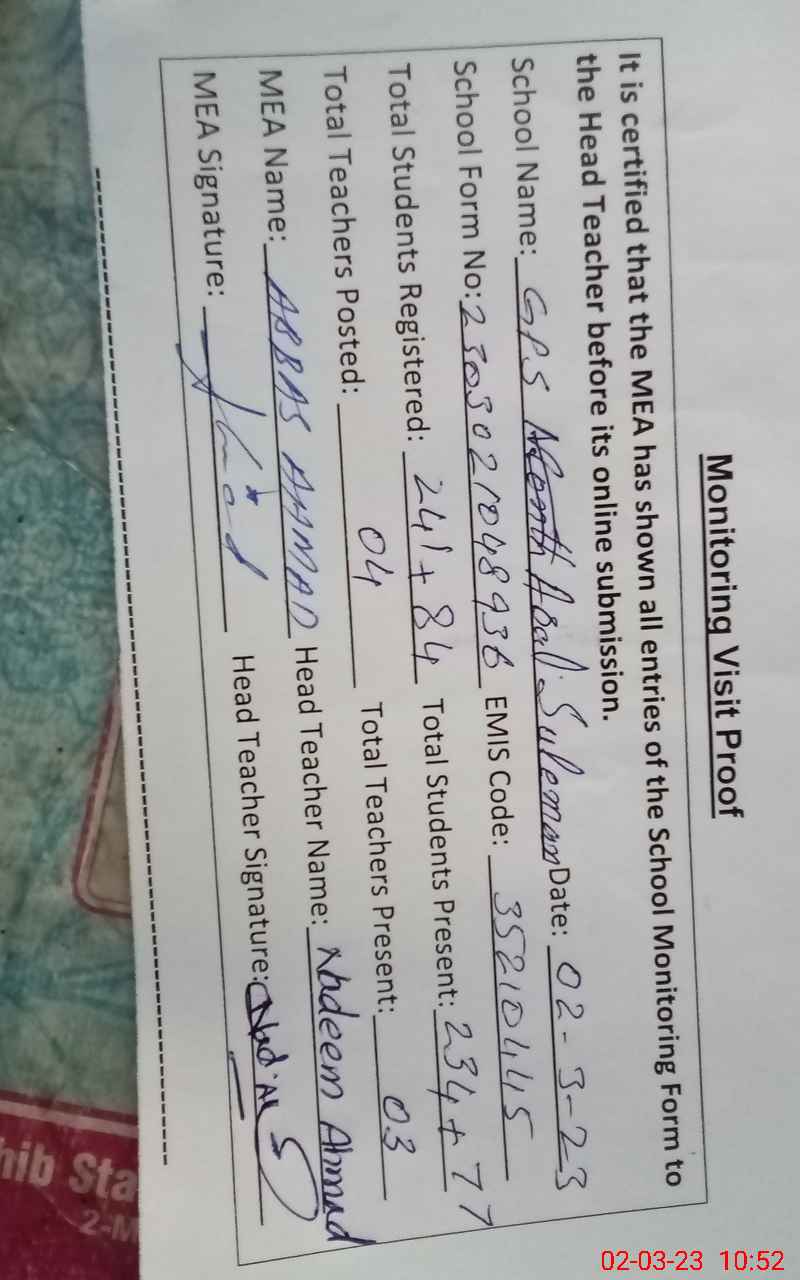 Monitoring Visit Proof
It is certified that the MEA has shown all entries of the School Monitoring Form to
the Head Teacher before its online submission.
School Name: GPS Suleman Date: 02-3-23
School Form No: 2303021048936 EMIS Code: 35210445
Total Students Registered: 241+84 Total Students Present: 234+77
Total Teachers Posted: 04 Total Teachers Present: 03
MEA Name: ABBAS AHMAD Head Teacher Name: Nadeem Ahmad
MEA Signature: Head Teacher Signature:
hib Sta
2-M
02-03-23 10:52